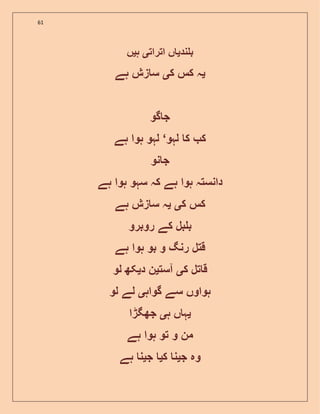 61
بلندیاں اتراتی ہیں
یہ کس کی سازش ہے
جاگو
کب کا لہو‘ لہو ہوا ہے
جانو
دانستہ ہوا ہے کہ سہو ہوا ہے
کس کی یہ سازش ہے
بلبل کے روبرو
قتل رنگ و بو ہوا ہے
قاتل کی آستین دیکھ لو
ہواوں سے گواہی لے لو
یہاں ہی جھگڑا
من و تو ہوا ہے
وہ جینا کیا جینا ہے